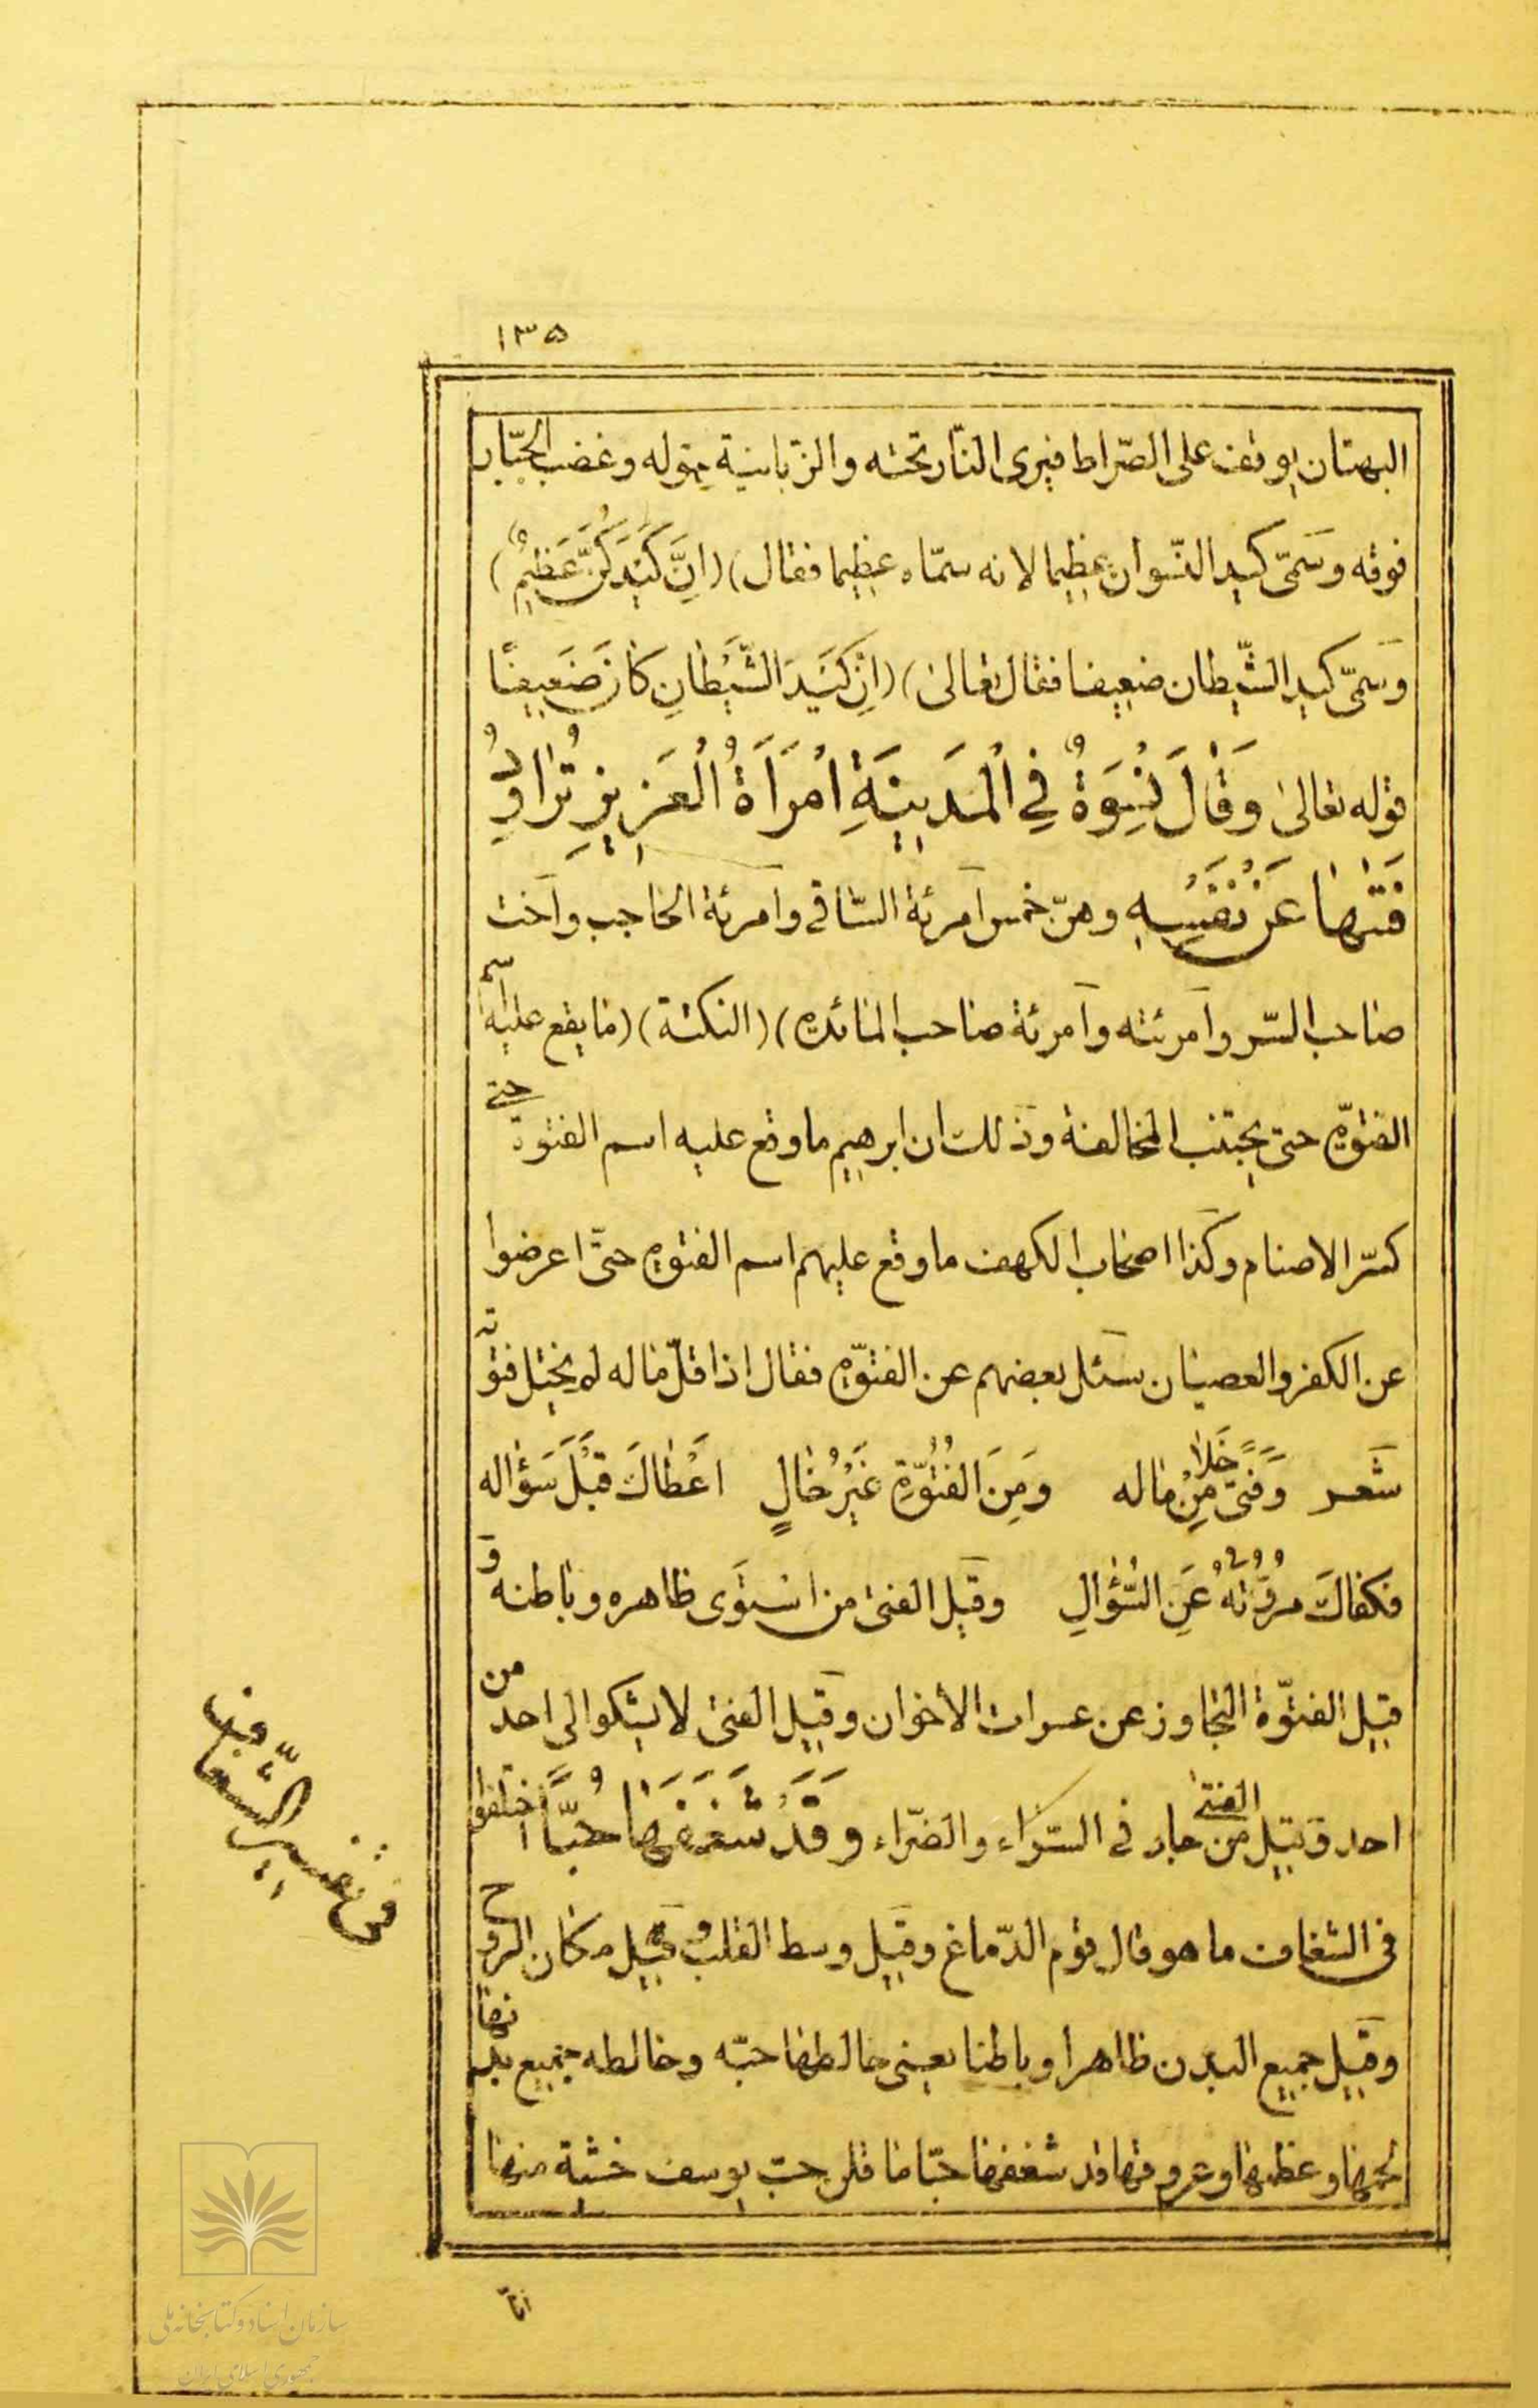 ١٣٥
البهتان يوقف على الصّراط فيرى النّار تحته والزّبانية حوله وغضب الجبّار
فوقه وسَمّى كيد النّسوان عظيما لانه سمّاه عظيما فقال) (اِنَّ كَيْدَكُنَّ عَظيمٌ)
وسَمّى كيد الشّيطان ضعيفا فقال تعالى) (اِنَّ كَيْدَ الشَّيْطانِ كانَ ضَعيفًا
قوله تعالى وَقالَ نِسْوَةٌ فِي الْمَدينَةِ امْرَاَةُ الْعَزيزِ تُراوِدُ
فَتٰيها عَنْ نَفْسِه وهنّ خمس امرئة السّاقى وامرئة الحاجب واخت
صاحب السّر وامرئته وامرئة صاحب المائده) (النكتة) (ما يقع عليه اسم
الفتوّه حتى يجتنب المخالفة وذلك ان ابرهيم ما وقع عليه اسم الفتوة حتى
كسّر الاصنام وكذا اصحاب الكهف ما وقع عليهم اسم الفتوه حتّى اعرضوا
عن الكفر والعصيان سئل بعضهم عن الفتوّه فقال اذا قلّ ماله لم يختل فتوّته
شعر وَفَتىً خَلا مِنْ ماله وَمِنَ الفُتُوَّةِ غَيْرُ خالٍ اَعْطاكَ قَبْلَ سَؤاله
فكفاكَ مرُوَّتهُ عَنِ السُّؤالِ وقيل الفتى من استوى ظاهره وباطنه و
قيل الفتوّة التجاوز عن عسرات الأخوان وقيل الفتى لا يشكوا الى احد من
احد وقيل الفتى من جاد فى السّرّاء والضرّاء و قَدْ شَغَفَها حُبًّا اختلفوا
فى الشغاف ما هو قال قوم الدّماغ وقيل وسط القلب وقيل مكان الروح
وقيل جميع البدن ظاهرا وباطنا يعنى خالطها حبّه وخالطه جميع بدنها
لحمها وعظمها وعروقها قد شغفها حبّا ما قلّ حبّ يوسف منها
فى تفسير الشّغاف
سازمان اسناد و کتابخانه ملی
جمهوری اسلامی ایران